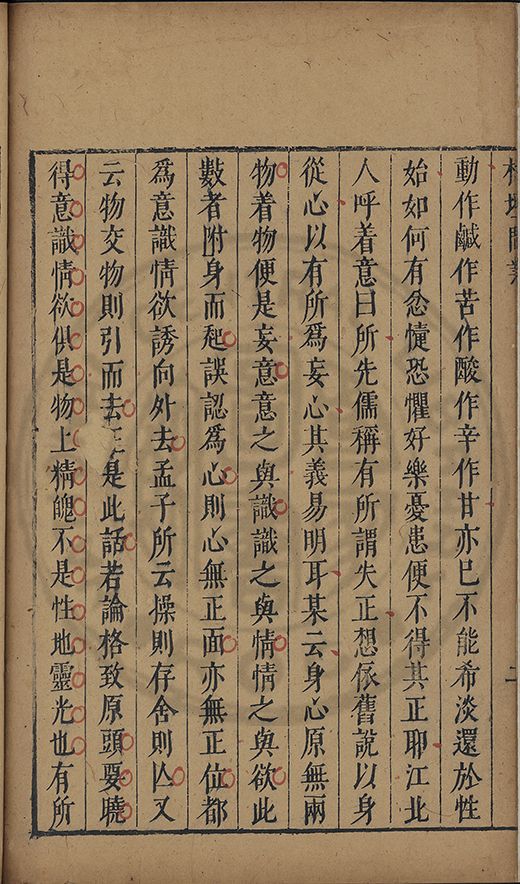 榕壇問業
二
動作鹹作苦作酸作辛作甘亦巳不能希淡還於性
始如何有忿懥恐懼好樂憂患便不得其正耶江北
人呼着意曰所先儒稱有所謂失正想依舊說以身
從心以有所爲妄心其義易明耳某云身心原無兩
物着物便是妄意意之與識識之與情情之與欲此
數者附身而起誤認爲心則心無正面亦無正位都
爲意識情欲誘向外去孟子所云操則存舍則亾又
云物交物則引而去正是此話若論格致原頭要曉
得意識情欲俱是物上精魄不是性地靈光也有所